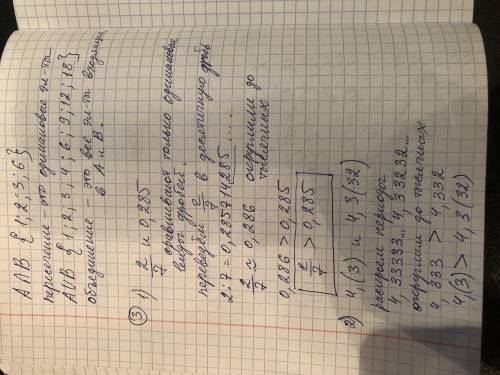 A∩B { 1; 2; 3; 6 }
пересечение - это одинаковые эл-ты
A∪B { 1; 2; 3; 4; 6; 9; 12; 18 }
объединение - это все эл-ты входящие
в A и B.
③ 1) 2/7 и 0,285
сравнивают только одинаковые
виды дробей.
переведём 2/7 в десятичную дробь
2:7 = 0,285714285.....
2/7 ≈ 0,286 округлили до
тысячных
0,286 > 0,285
2/7 > 0,285
2) 4,(3) и 4,3(32)
раскроем периоды
4,33333... 4,33232...
округлили до тысячных
4,333 > 4,332
4,(3) > 4,3(32)